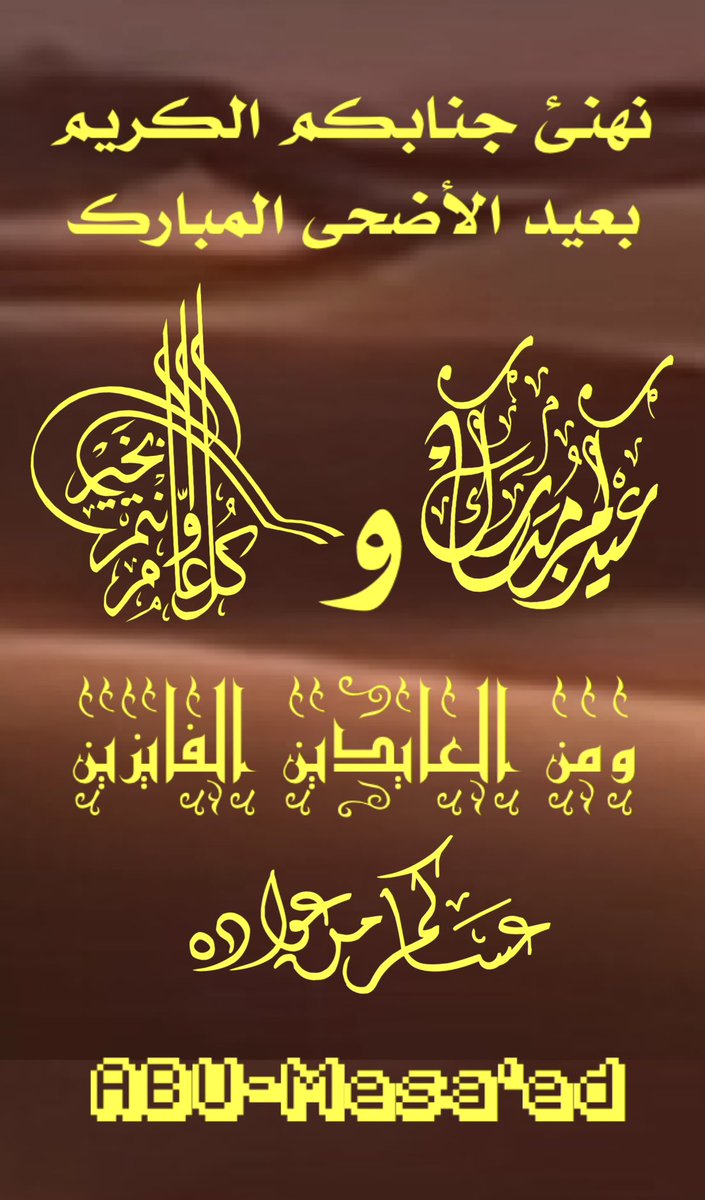 نهنئ جنابكم الكريم
بعيد الأضحى المبارك
عيدكم مبارك و كل عام وأنتم بخير
ومن العايدين الفايزين
عساكم من عواده
ABU-Mesa'ed